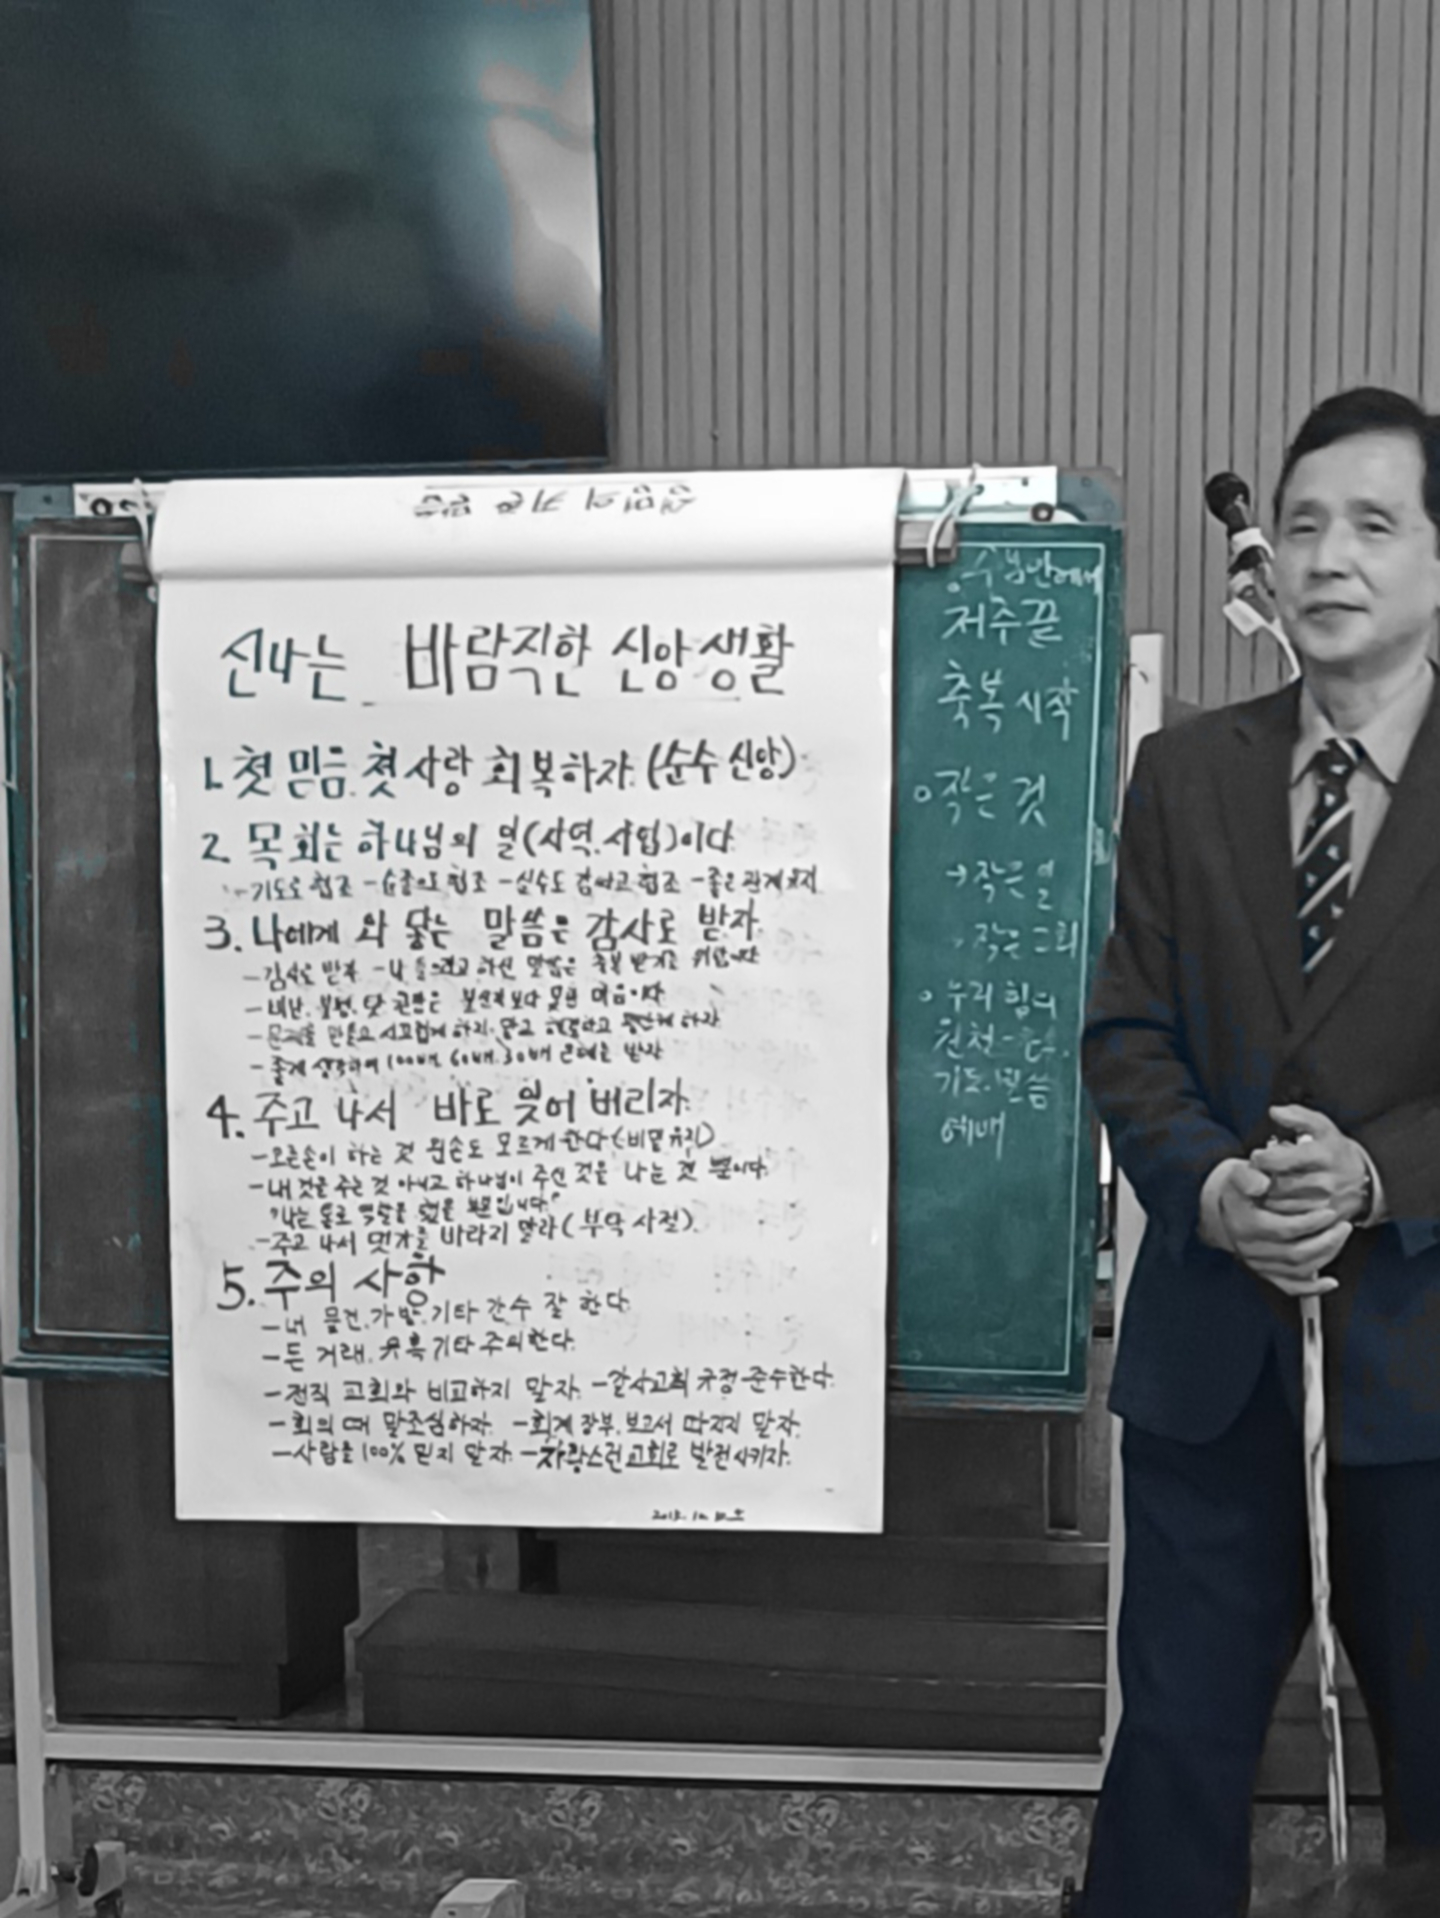 신나는 바람직한 신앙생활
1. 첫 믿음. 첫 사랑 회복하자. (순수 신앙)
2. 목회는 하나님의 일(사역.사업)이다
-기도로 협조 -순종으로 협조 -실수도 감싸고 협조 -좋은 관계유지
3. 나에게 와 닿는 말씀은 감사로 받자
-감사로 받자 -나 들으라고 하신 말씀은 축복 받기를 위함이다
-비난. 불평.
하지 말고
-좋게 생각하여 100배. 60배. 30배 은혜를 받자
4. 주고 나서 바로 잊어 버리자.
-오른손이 하는 것 왼손도 모르게 한다(비밀유지)
-내 것을 주는 것 아니고 하나님이 주신 것을 나눈 것 뿐이다.
"나는 통로 역할을 했을 뿐입니다"
-주고 나서 댓가를 바라지 말라(부작 사절).
5. 주의 사항
-내 물건.가방.기타 간수 잘 한다.
-돈 거래. 유혹 기타 주의한다.
-전직 교회와 비교하지 말자. -감사교회 규정 준수한다.
-회의 때 말조심하자. -회계 장부.보고서 따지지 말자.
-사람을 100% 믿지 말자. -자랑스런 교회로 발전시키자.
저주끝
축복 시작
○작은 것
→작은 일
작은 그릇
○누리 힘의
원천-
기도.말씀
예배